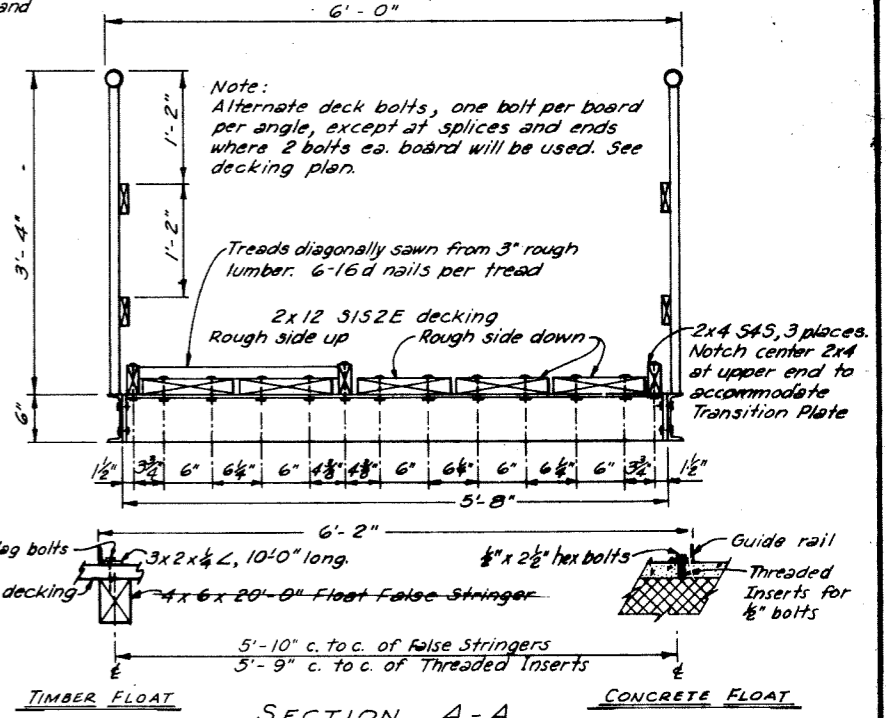 and
6'-0"
Note:
Alternate deck bolts, one bolt per board
per angle, except at splices and ends
where 2 bolts ea. board will be used. See
decking plan.
1'-2"
1'-2"
3'-4"
Treads diagonally sawn from 3" rough
lumber. 6-16d nails per tread
2x12 S1S2E decking
Rough side up
Rough side down
2x4 S4S, 3 places.
Notch center 2x4
at upper end to
accommodate
Transition Plate
6"
1½" 3¾" 6" 6¼" 6" 4⅜" 4⅜" 6" 6¼" 6" 6¼" 6" 3¾" 1½"
5'-8"
6'-2"
lag bolts
3x2x¼ ∠, 10'-0" long.
½" x 2½" hex bolts
Guide rail
decking
4x6x20'-0" Float False Stringer
Threaded
Inserts for
½" bolts
5'-10" c. to c. of False Stringers
5'-9" c. to c. of Threaded Inserts
℄ ℄
TIMBER FLOAT
CONCRETE FLOAT
SECTION A-A